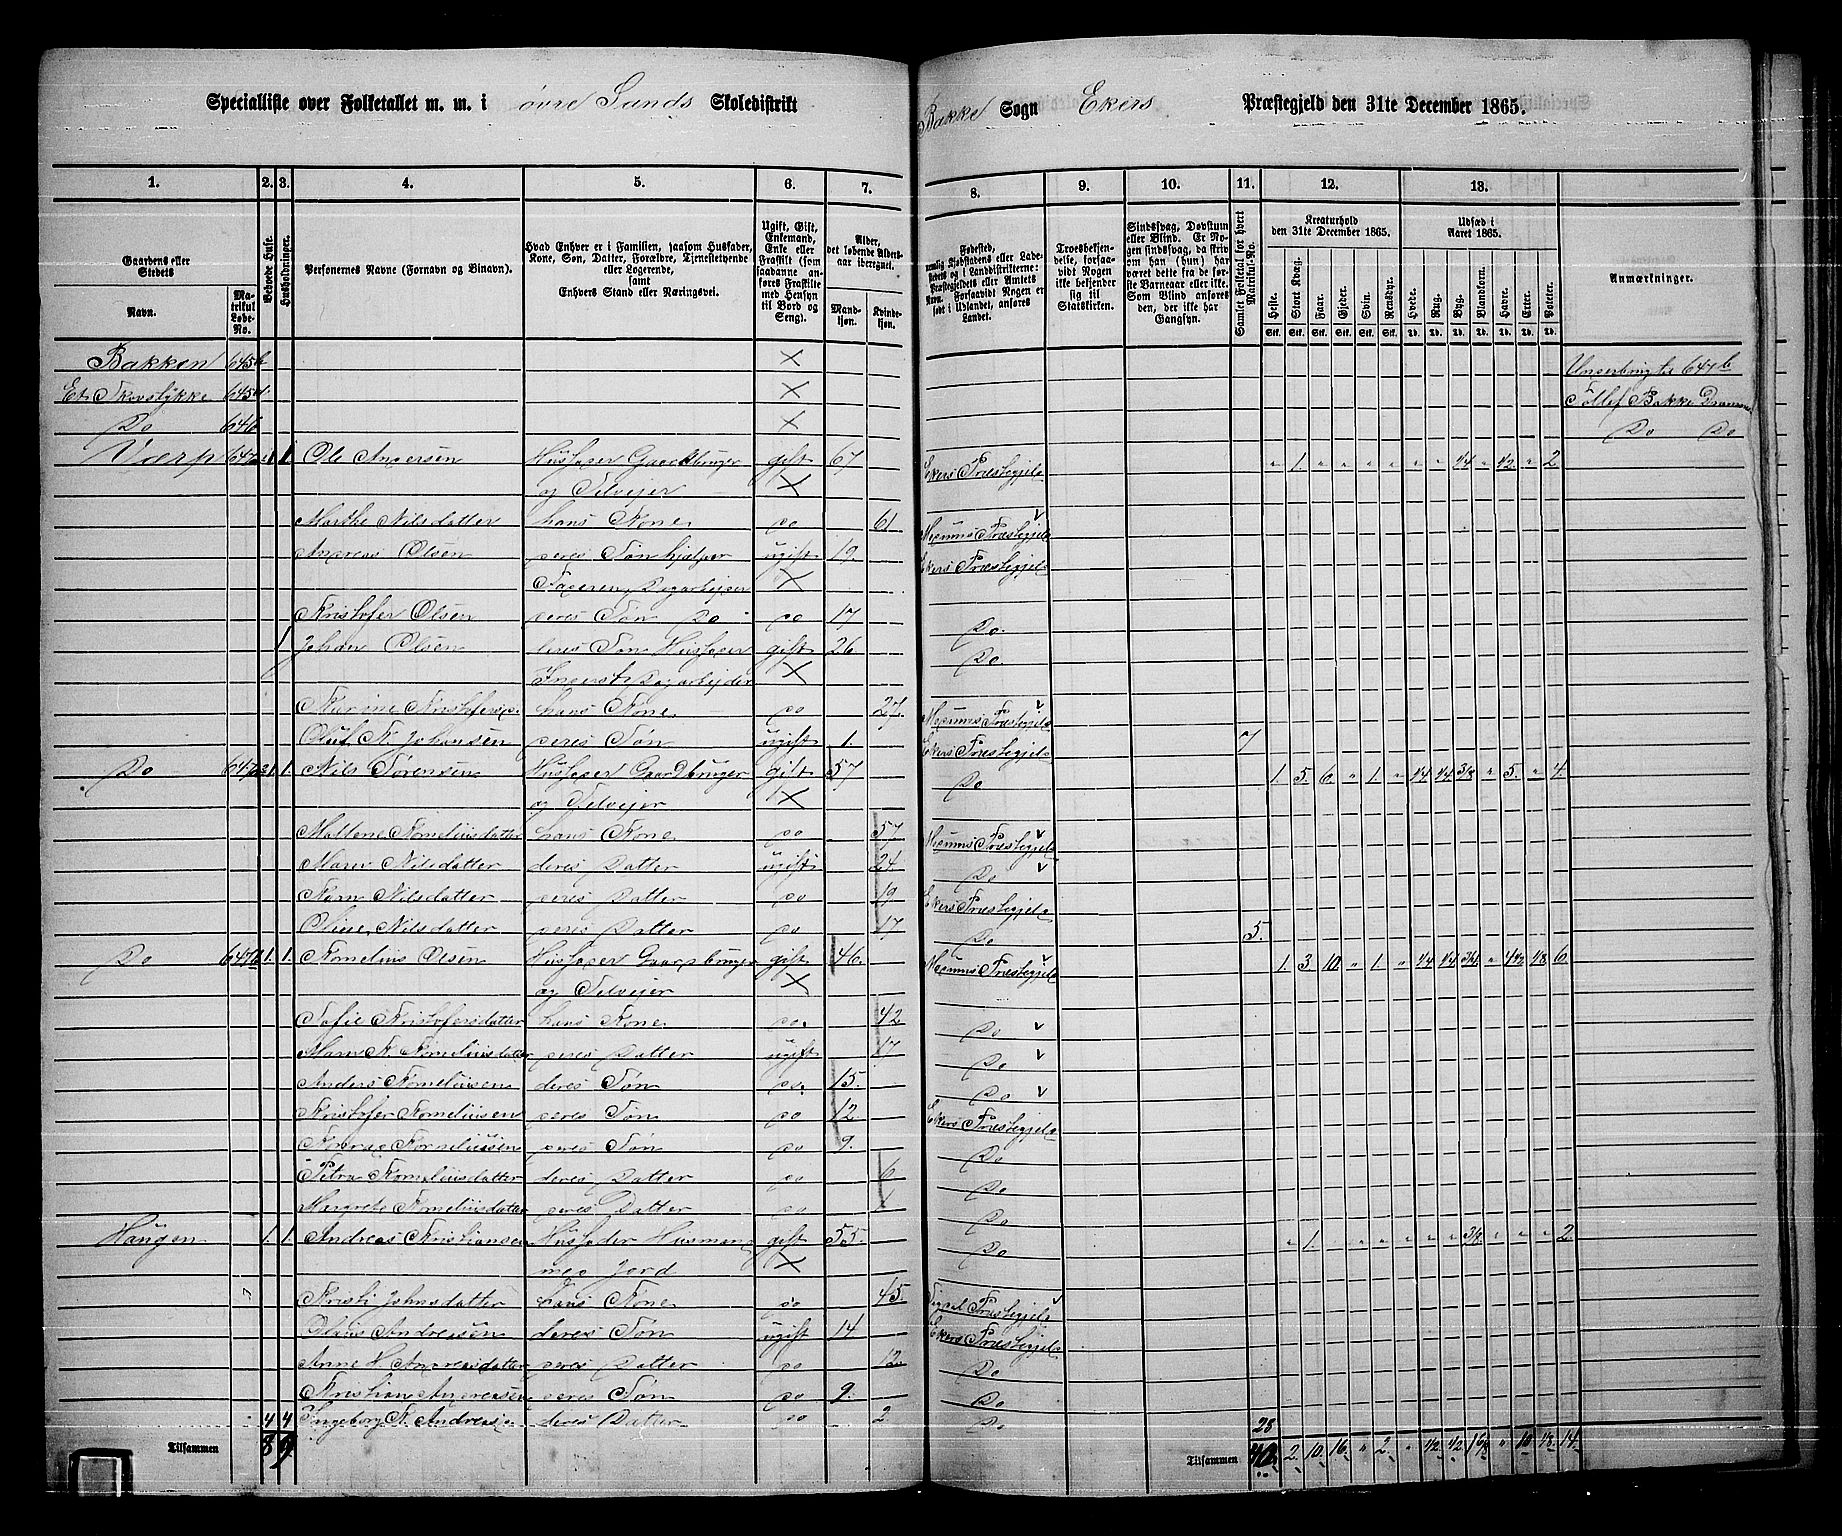 Specialliste over Folketallet m. m. i øvre Sunds Skoledistrikt
Bakke Sogn Ekers Præstegjeld den 31te December 1865.
1. 2. 3. 4. 5. 6. 7. 8. 9. 10. 11. 12. 13.
Gaardens eller Stedets
Navn.
Matrikul Løbe-No.
Beboede Huse.
Husholdninger.
Personernes Navne (Fornavn og Binavn).
Hvad Enhver er i Familien, saasom Husfader, Kone, Søn, Datter, Forældre, Tjenestetyende eller Logerende, samt Enhvers Stand eller Næringsvei.
Ugift, Gift, Enkemand, Enke eller Fraskilt (som saadanne anføres Fraskilte med Hensyn til Bord og Seng).
Alder, det løbende Aldersaar iberegnet.
Mandkjøn. Kvindekjøn.
Fødested,
Troesbekjendelse, forsaavidt Nogen ikke bekjender sig til Statskirken.
Sindssvag, Døvstum eller Blind. Er Nogen sindssvag, da skrives om han (hun) har været dette fra de første Barneaar eller ikke. Som Blind anføres den, der ikke har Gangsyn.
Samlet Folketal for hvert Matrikul-No.
Kreaturhold den 31te December 1865.
Heste. Stort Kvæg. Faar. Gjeder. Svin. Rensdyr.
Udsæd i Aaret 1865.
Hvede. Rug. Byg. Blandkorn. Havre. Erter. Poteter.
Anmærkninger.
Bakken 645b × Underbrugt 647b
Et Skovstykke 645d × Tollef Bakke Drammen
Do 646 × Do Do
Værp 647a 1 1 Ole Andersen Husfader Gaardbruger gift 67 Ekers Præstegjeld " 1. " " " " " " 1/4 " 1/2 " 2
og Selveier ×
Marthe Nilsdatter hans Kone do 61 Modums Præstegjeld
Andreas Olsen deres Søn hjelper ugift 19 Ekers Præstegjeld
Faderen, Dagarbeider ×
Kristofer Olsen deres Søn Do do 17 Do
1 Johan Olsen deres Søn Husfader gift 26 Do
Inderst Dagarbeider ×
Karine Kristofersd. hans Kone do 27. Modums Præstegjeld
Oluf K. Johansen deres Søn ugift 1. Ekers Præstegjeld 7
Do 647 1 1. Nils Sørensen Husfader Gaardbruger gift 57 Do 1. 5. 6. " 1. " 1/4 1/4 3/8 " 5. " 4.
og Selveier ×
Maltene Kornelius datter hans Kone do 57 Modums Præstegjeld
Maren Nilsdatter deres Datter ugift 24 Do
Karn Nilsdatter deres Datter do 19 Ekers Præstegjeld
Oline Nilsdatter deres Datter do 17 Do 5.
Do 647b 1. 1. Kornelius Olsen Husfader Gaardbruger gift 46. Modums Præstegjeld 1. 3. 10. " 1. " 1/4 1/4 3/4 " 4 1/2 1/8 6
og Selveier ×
Sofie Kristofersdatter hans Kone do. 42 Do
Karn K. Korneliusdatter deres Datter ugift 17 Do
Anders Korneliusen deres Søn do. 15. Do
Kristofer Korneliusen deres Søn do 12 Ekers Præstegjeld
Konrad Korneliusen deres Søn do 9. Do
Petra Korneliusdatter deres Datter do 6 Do
Margrete Korneliusdatter deres Datter do 1 Do
Haugen 1. 1. Andreas Kristiansen Husfader Husmand gift 55. Do " 1. " " " " " 3/8 " " " 2.
med Jord ×
Kristi Johnsdatter hans Kone do 45 Sigdal Præstegjeld
Olaus Andreasen deres Søn ugift 14 Ekers Præstegjeld
Anne H. Andreasdatter deres Datter do 12. Do
Kristian Andreasen deres Søn do 9. Do
4 4 Ingeborg K. Andreasd. deres Datter do 2 Do 28
Tilsammen 8 9. Tilsammen 40 2. 10. 16. " 2. " 1/2 1/2 " 10 1/8. 14.